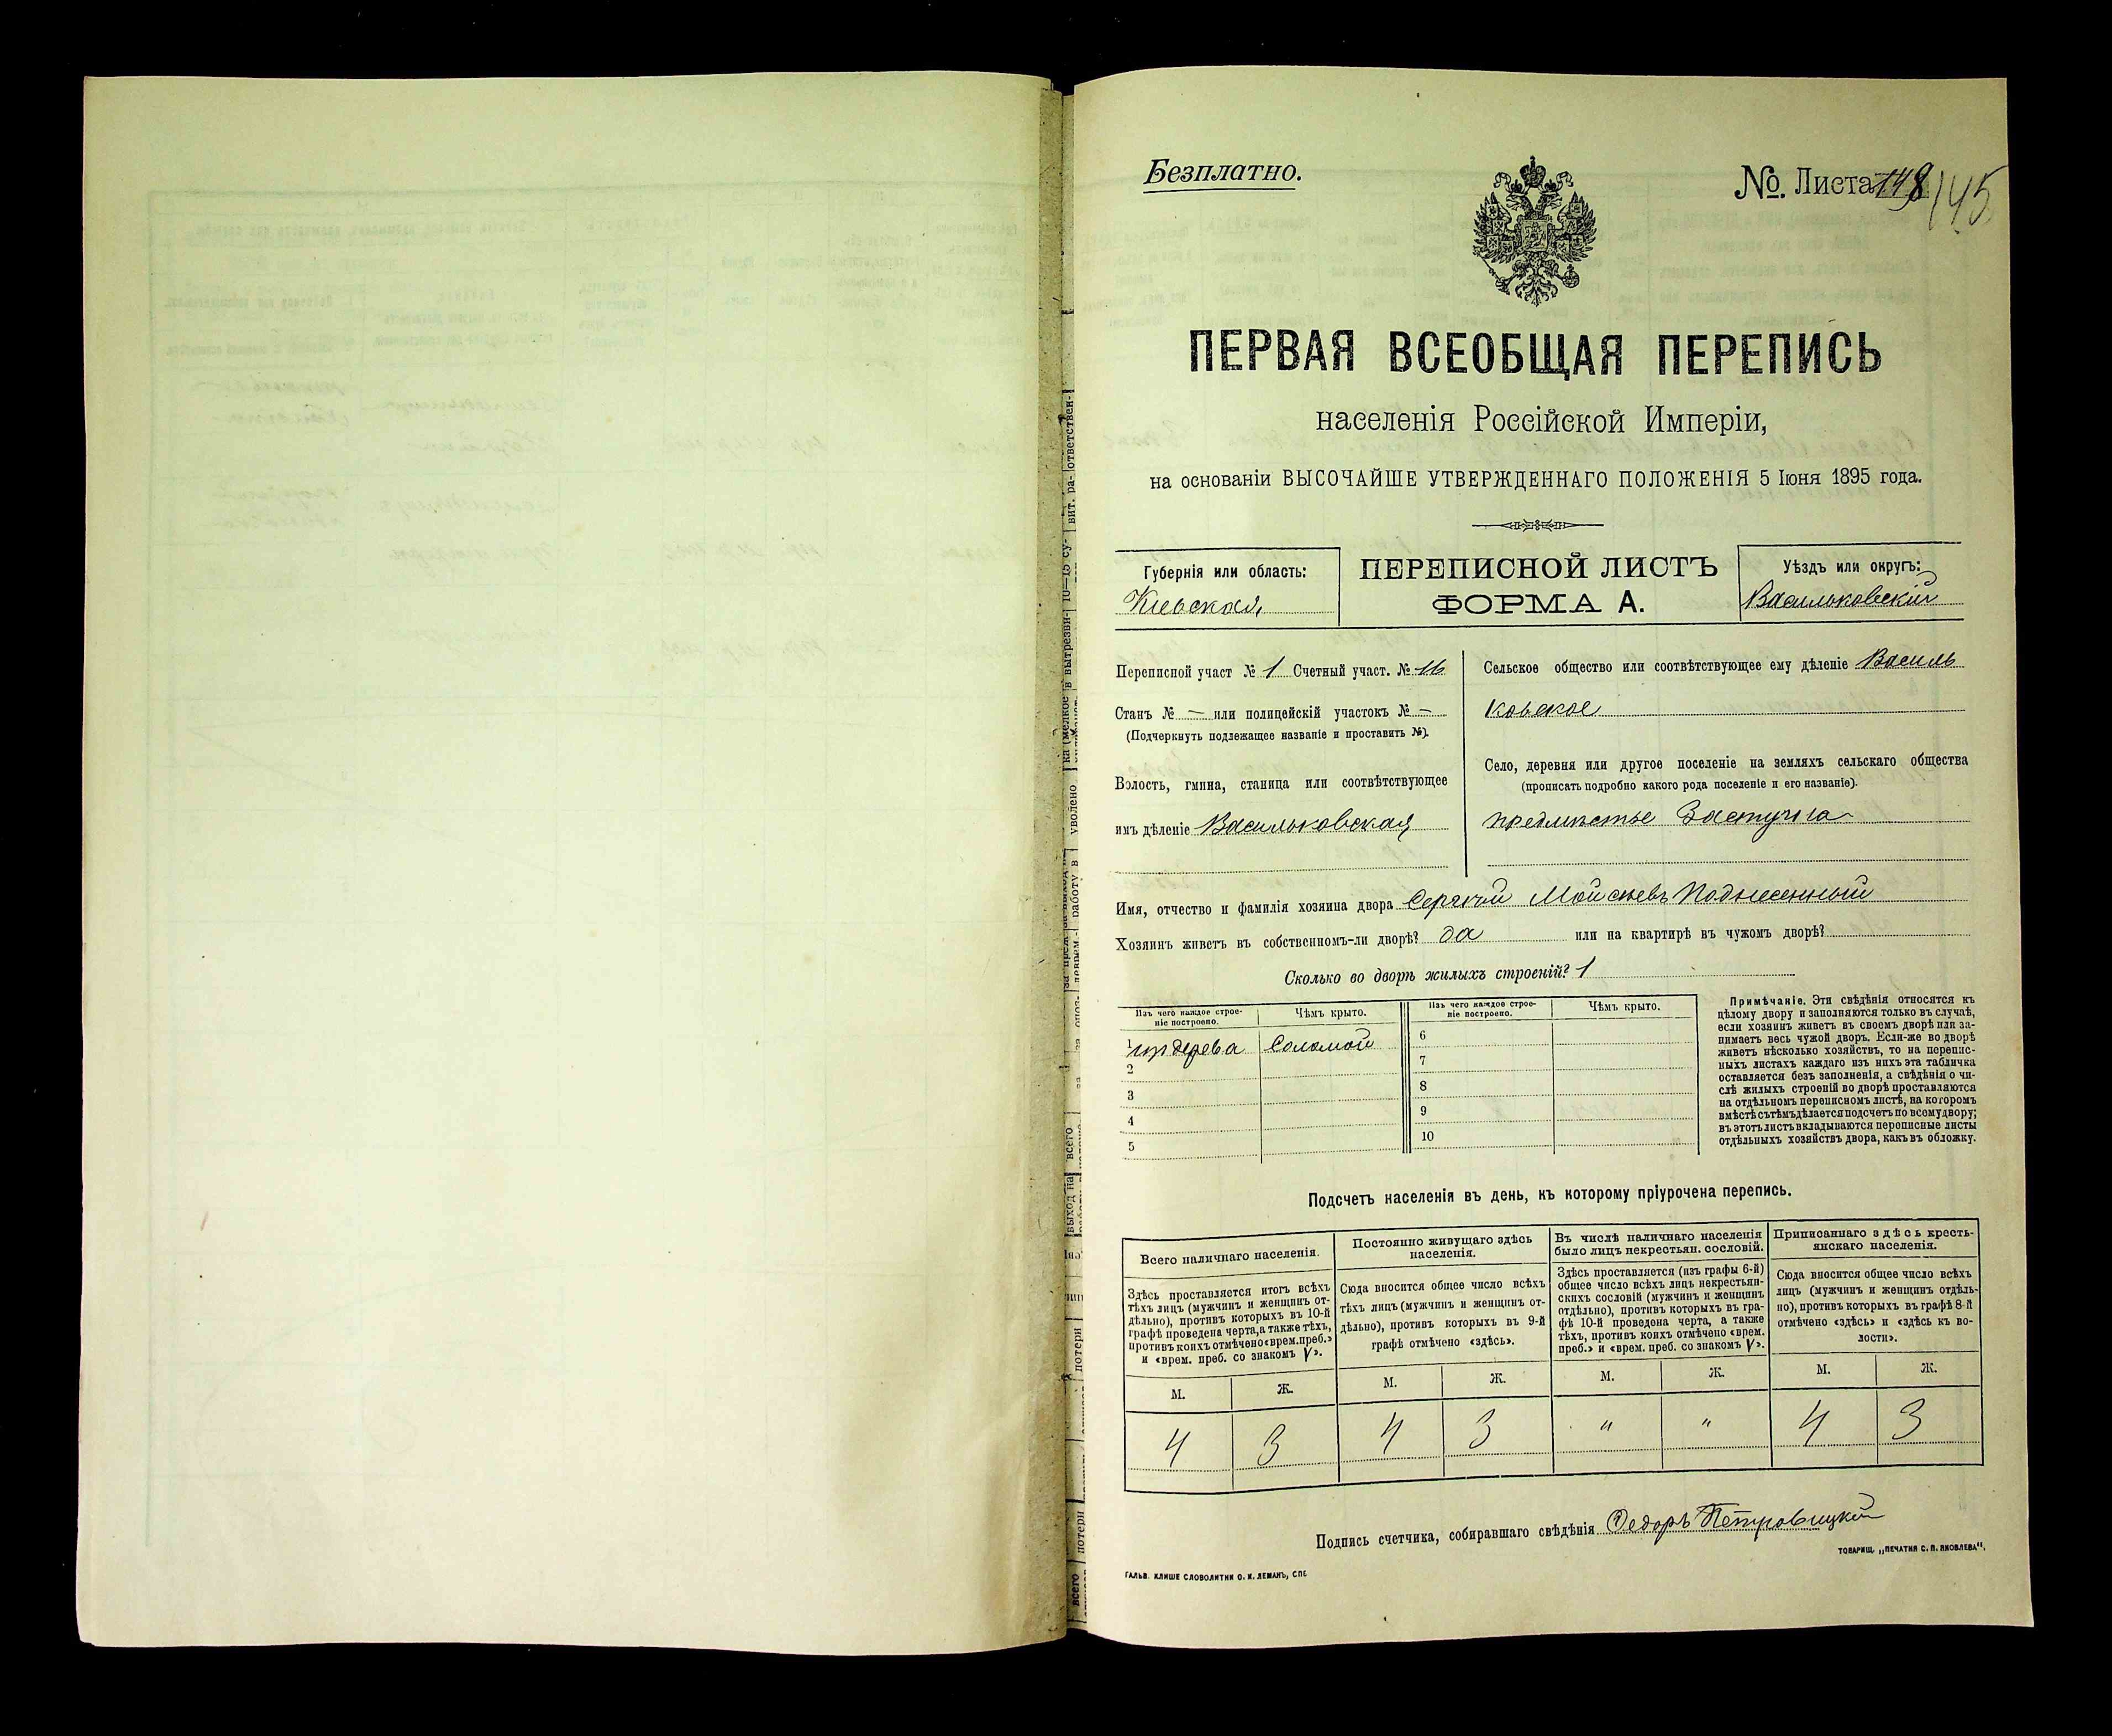 Безплатно.
№. Листа 148 145
ПЕРВАЯ ВСЕОБЩАЯ ПЕРЕПИСЬ
населенія Россійской Имперіи,
на основаніи ВЫСОЧАЙШЕ УТВЕРЖДЕННАГО ПОЛОЖЕНІЯ 5 Іюня 1895 года.
Губернія или область:
Кіевская
ПЕРЕПИСНОЙ ЛИСТЪ
ФОРМА А.
Уѣздъ или округъ:
Васильковскій
Переписной участ № 1 Счетный участ. № 16
Станъ № — или полицейскій участокъ № —
(Подчеркнуть подлежащее названіе и проставить №).
Волость, гмина, станица или соотвѣтствующее
имъ дѣленіе Васильковская
Сельское общество или соотвѣтствующее ему дѣленіе Василь
ковское
Село, деревня или другое поселеніе на земляхъ сельскаго общества
(прописать подробно какого рода поселеніе и его названіе).
предмѣстье Застугна
Имя, отчество и фамилія хозяина двора Сергѣй Мойсѣевъ Поднесенный
Хозяинъ живетъ въ собственномъ-ли дворѣ? да или на квартирѣ въ чужомъ дворѣ?
Сколько во дворѣ жилыхъ строеній? 1
Изъ чего каждое строе-
ніе построено.
Чѣмъ крыто.
1 изъ дерева Соломой
2
3
4
5
Изъ чего каждое строе-
ніе построено.
Чѣмъ крыто.
6
7
8
9
10
Примѣчаніе. Эти свѣдѣнія относятся къ
цѣлому двору и заполняются только въ случаѣ,
если хозяинъ живетъ въ своемъ дворѣ или за-
нимаетъ весь чужой дворъ. Если-же во дворѣ
живетъ нѣсколько хозяйствъ, то на перепис-
ныхъ листахъ каждаго изъ нихъ эта табличка
оставляется безъ заполненія, а свѣдѣнія о чи-
слѣ жилыхъ строеній во дворѣ проставляются
на отдѣльномъ переписномъ листѣ, на которомъ
вмѣстѣ съ тѣмъ дѣлается подсчетъ по всему двору;
въ этотъ листъ вкладываются переписные листы
отдѣльныхъ хозяйствъ двора, какъ въ обложку.
Подсчетъ населенія въ день, къ которому пріурочена перепись.
Всего наличнаго населенія.
Здѣсь проставляется итогъ всѣхъ
тѣхъ лицъ (мужчинъ и женщинъ от-
дѣльно), противъ которыхъ въ 10-й
графѣ проведена черта, а также тѣхъ,
противъ коихъ отмѣчено «врем. преб.»
и «врем. преб. со знакомъ V».
М. Ж.
4 3
Постоянно живущаго здѣсь
населенія.
Сюда вносится общее число всѣхъ
тѣхъ лицъ (мужчинъ и женщинъ от-
дѣльно), противъ которыхъ въ 9-й
графѣ отмѣчено «здѣсь».
М. Ж.
4 3
Въ числѣ наличнаго населенія
было лицъ некрестьян. сословій.
Здѣсь проставляется (изъ графы 6-й)
общее число всѣхъ лицъ некрестьян-
скихъ сословій (мужчинъ и женщинъ
отдѣльно), противъ которыхъ въ гра-
фѣ 10-й проведена черта, а также
тѣхъ, противъ коихъ отмѣчено «врем.
преб.» и «врем. преб. со знакомъ V».
М. Ж.
" "
Приписаннаго здѣсь кресть-
янскаго населенія.
Сюда вносится общее число всѣхъ
лицъ (мужчинъ и женщинъ отдѣль-
но), противъ которыхъ въ графѣ 8-й
отмѣчено «здѣсь» и «здѣсь къ во-
лости».
М. Ж.
4 3
Подпись счетчика, собиравшаго свѣдѣнія Ѳедоръ Петровицкій
ТОВАРИЩ. „ПЕЧАТНЯ С. П. ЯКОВЛЕВА".
ГАЛЬВ. КЛИШЕ СЛОВОЛИТНИ О. И. ЛЕМАНЪ, СПБ